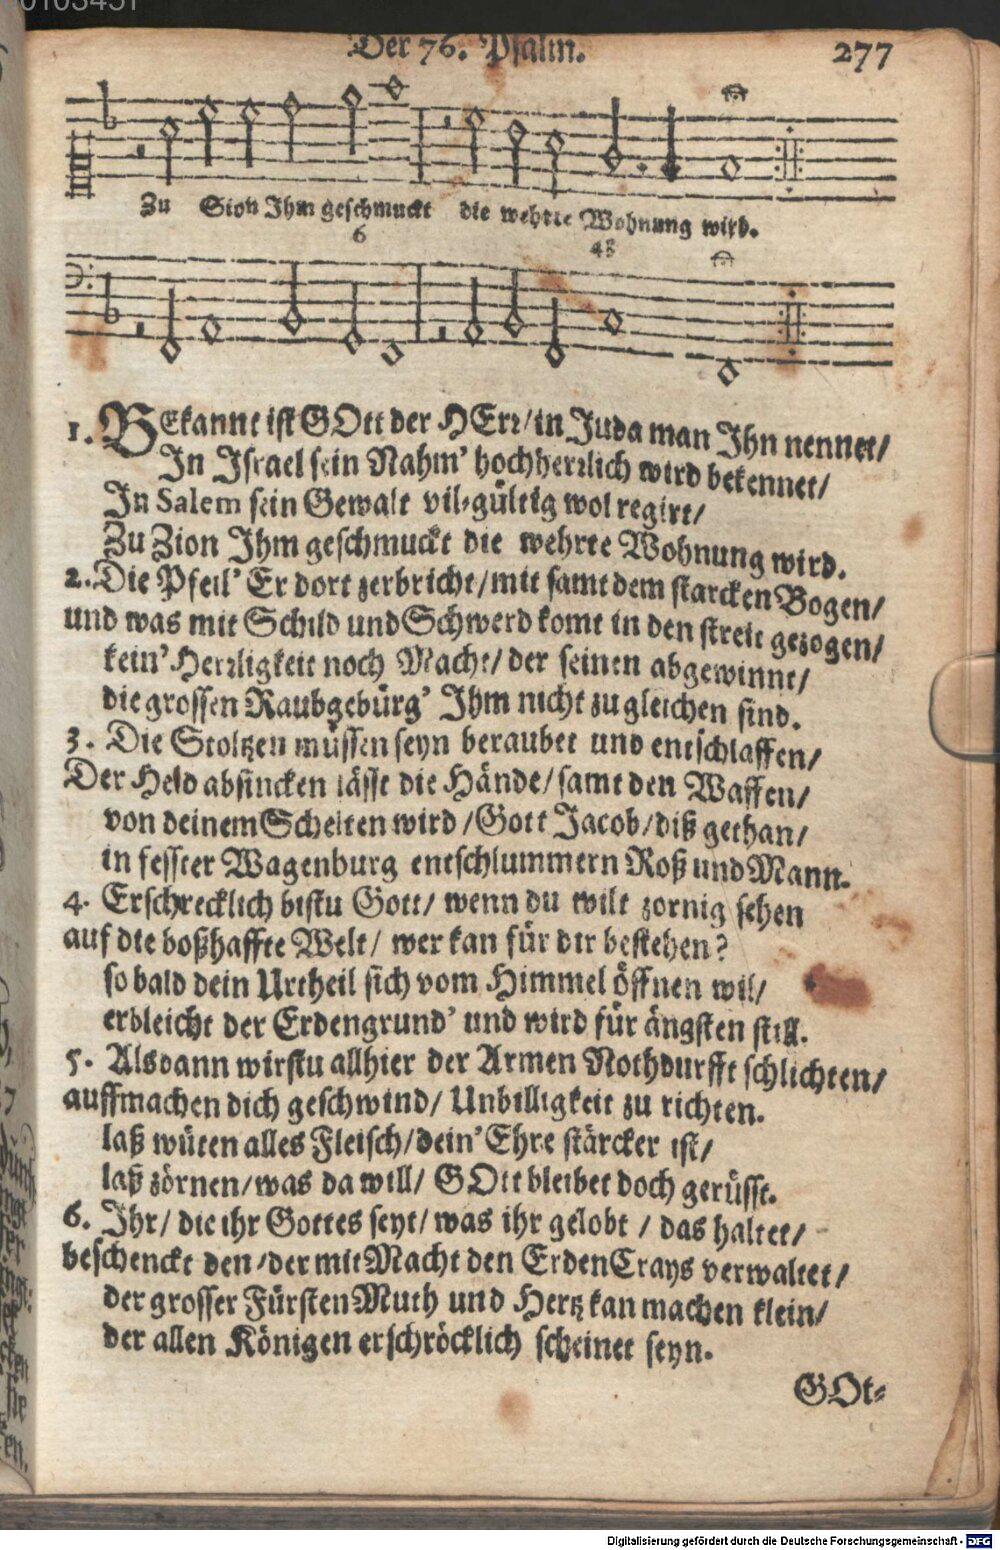 Der 76. Psalm. 277
Zu Sion Ihm geschmuckt die wehrte Wohnung wird.
6 43
1. BEkannt ist GOtt der HErr/in Juda man Ihn nennet/
In Israel sein Nahm' hochherrlich wird bekennet/
In Salem sein Gewalt vil-gültig wol regirt/
Zu Zion Ihm geschmuckt die wehrte Wohnung wird.
2. Die Pfeil' Er dort zerbricht/mit samt dem starcken Bogen/
und was mit Schild und Schwerd komt in den streit gezogen/
kein' Herrligkeit noch Macht/der seinen abgewinnt/
die grossen Raubgebürg' Ihm nicht zu gleichen sind.
3. Die Stoltzen müssen seyn beraubet und entschlaffen/
Der Held absincken lässt die Hände/samt den Waffen/
von deinem Schelten wird/Gott Jacob/diß gethan/
in fesster Wagenburg entschlummern Roß und Mann.
4. Erschrecklich bistu Gott/ wenn du wilt zornig sehen
auf die boßhaffte Welt/ wer kan für dir bestehen?
so bald dein Urtheil sich vom Himmel öffnen wil/
erbleicht der Erdengrund' und wird für ängsten still.
5. Alsdann wirstu allhier der Armen Nothdurfft schlichten/
auffmachen dich geschwind/ Unbilligkeit zu richten.
laß wüten alles Fleisch/dein' Ehre stärcker ist/
laß zörnen/was da will/ GOtt bleibet doch gerüsst.
6. Ihr/ die ihr Gottes seyt/ was ihr gelobt / das haltet/
beschenckt den/der mit Macht den Erden Crays verwaltet/
der grosser Fürsten Muth und Hertz kan machen klein/
der allen Königen erschröcklich scheinet seyn.
GOt-
Digitalisierung gefördert durch die Deutsche Forschungsgemeinschaft - DFG